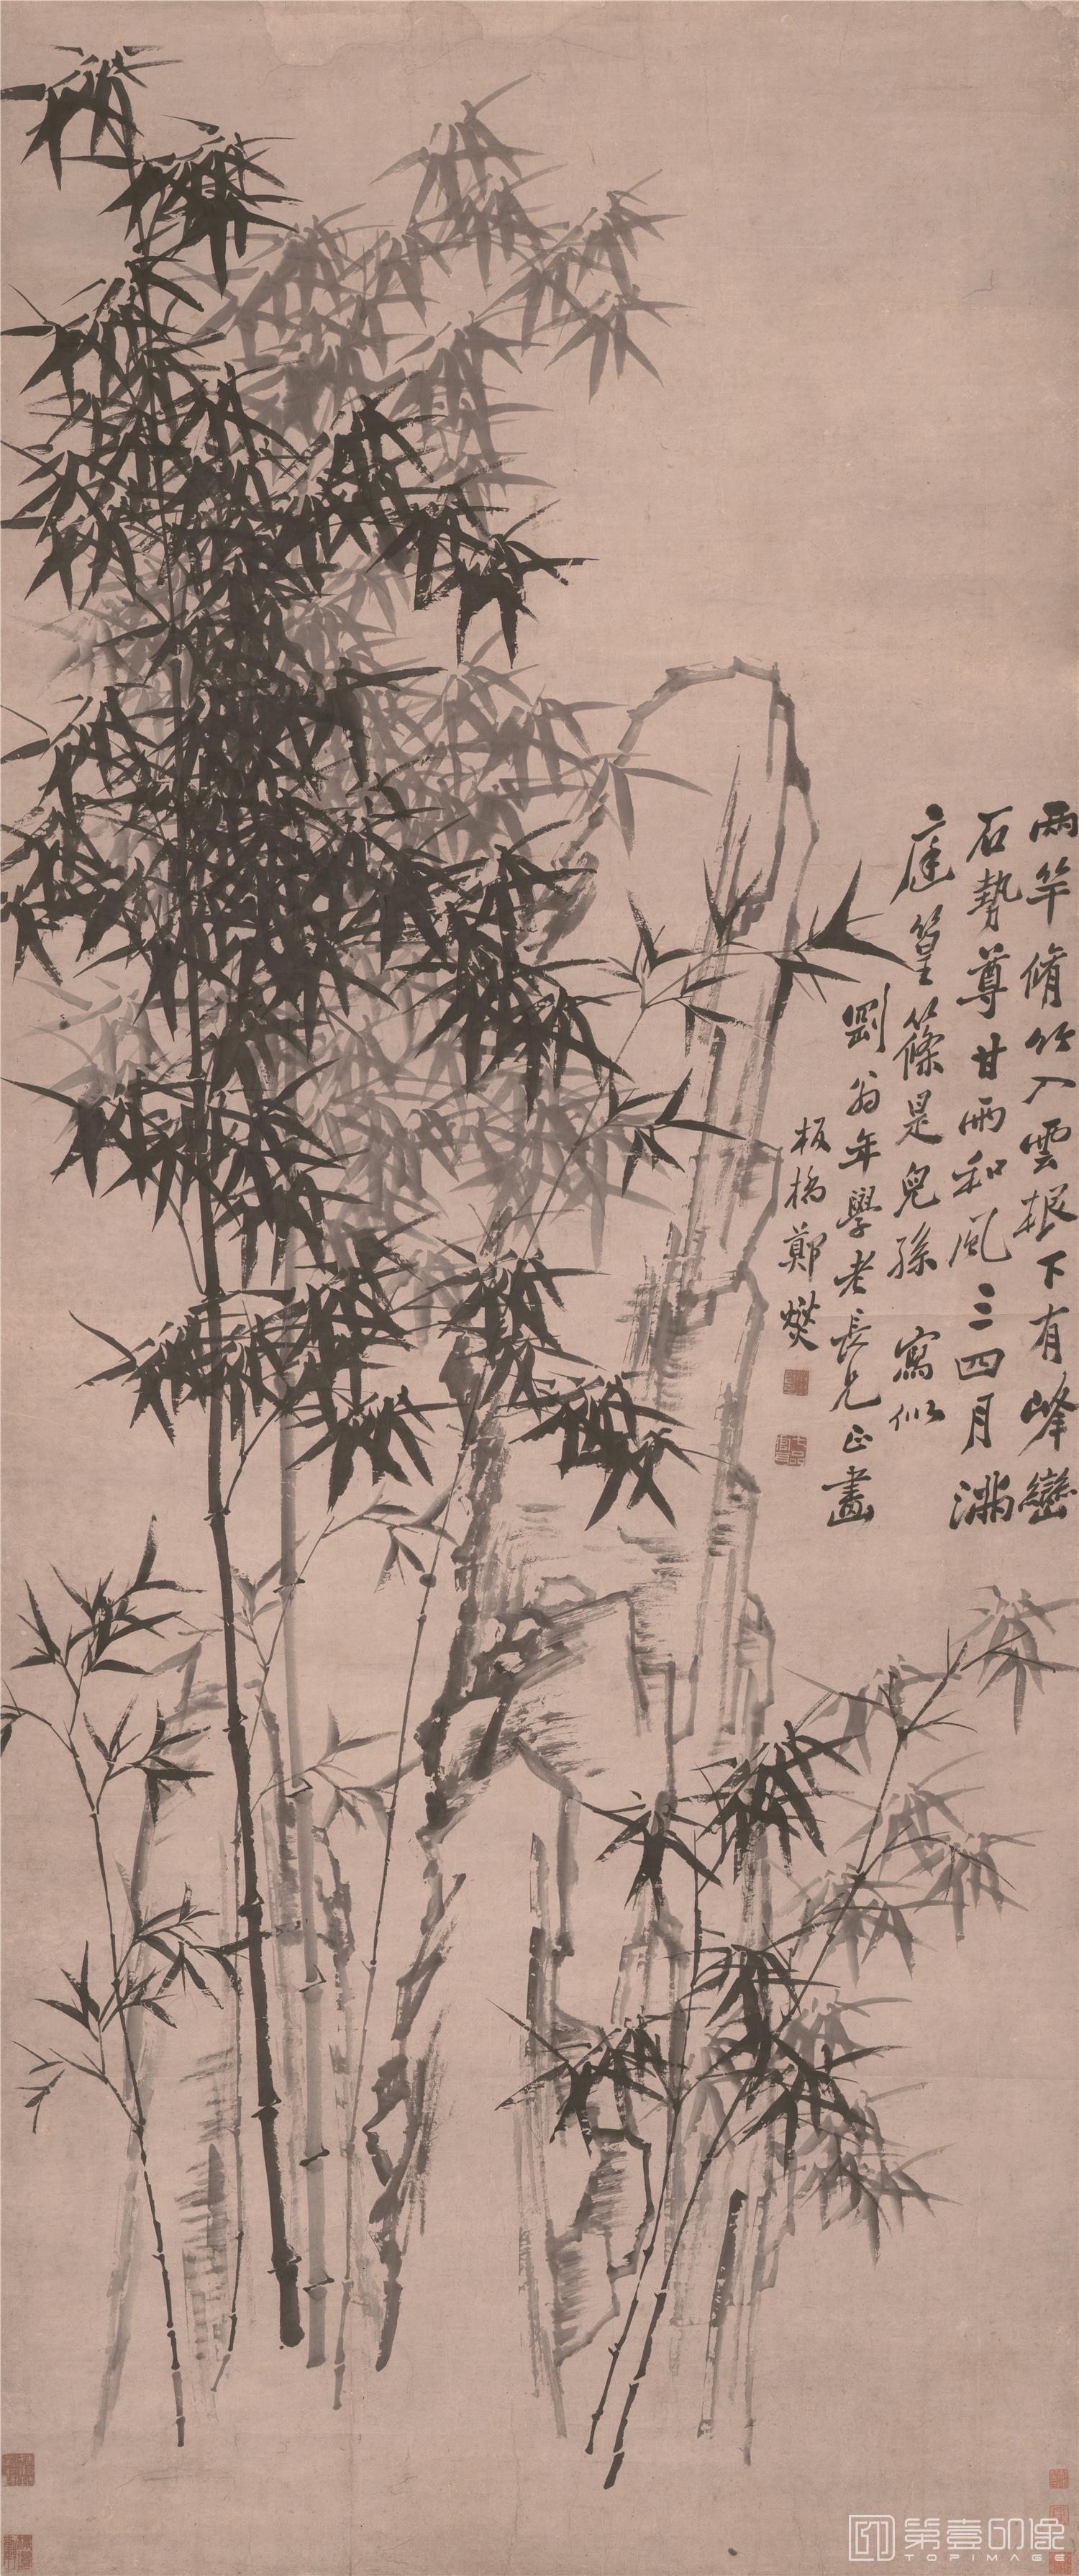 兩竿脩竹入雲根下有峰巒
石勢尊甘雨和風三四月滿
庭篁篠是兒孫 寫似
劉翁年學老長兄正畫
板橋鄭燮
七品官耳
第壹印像
TOPIMAGE